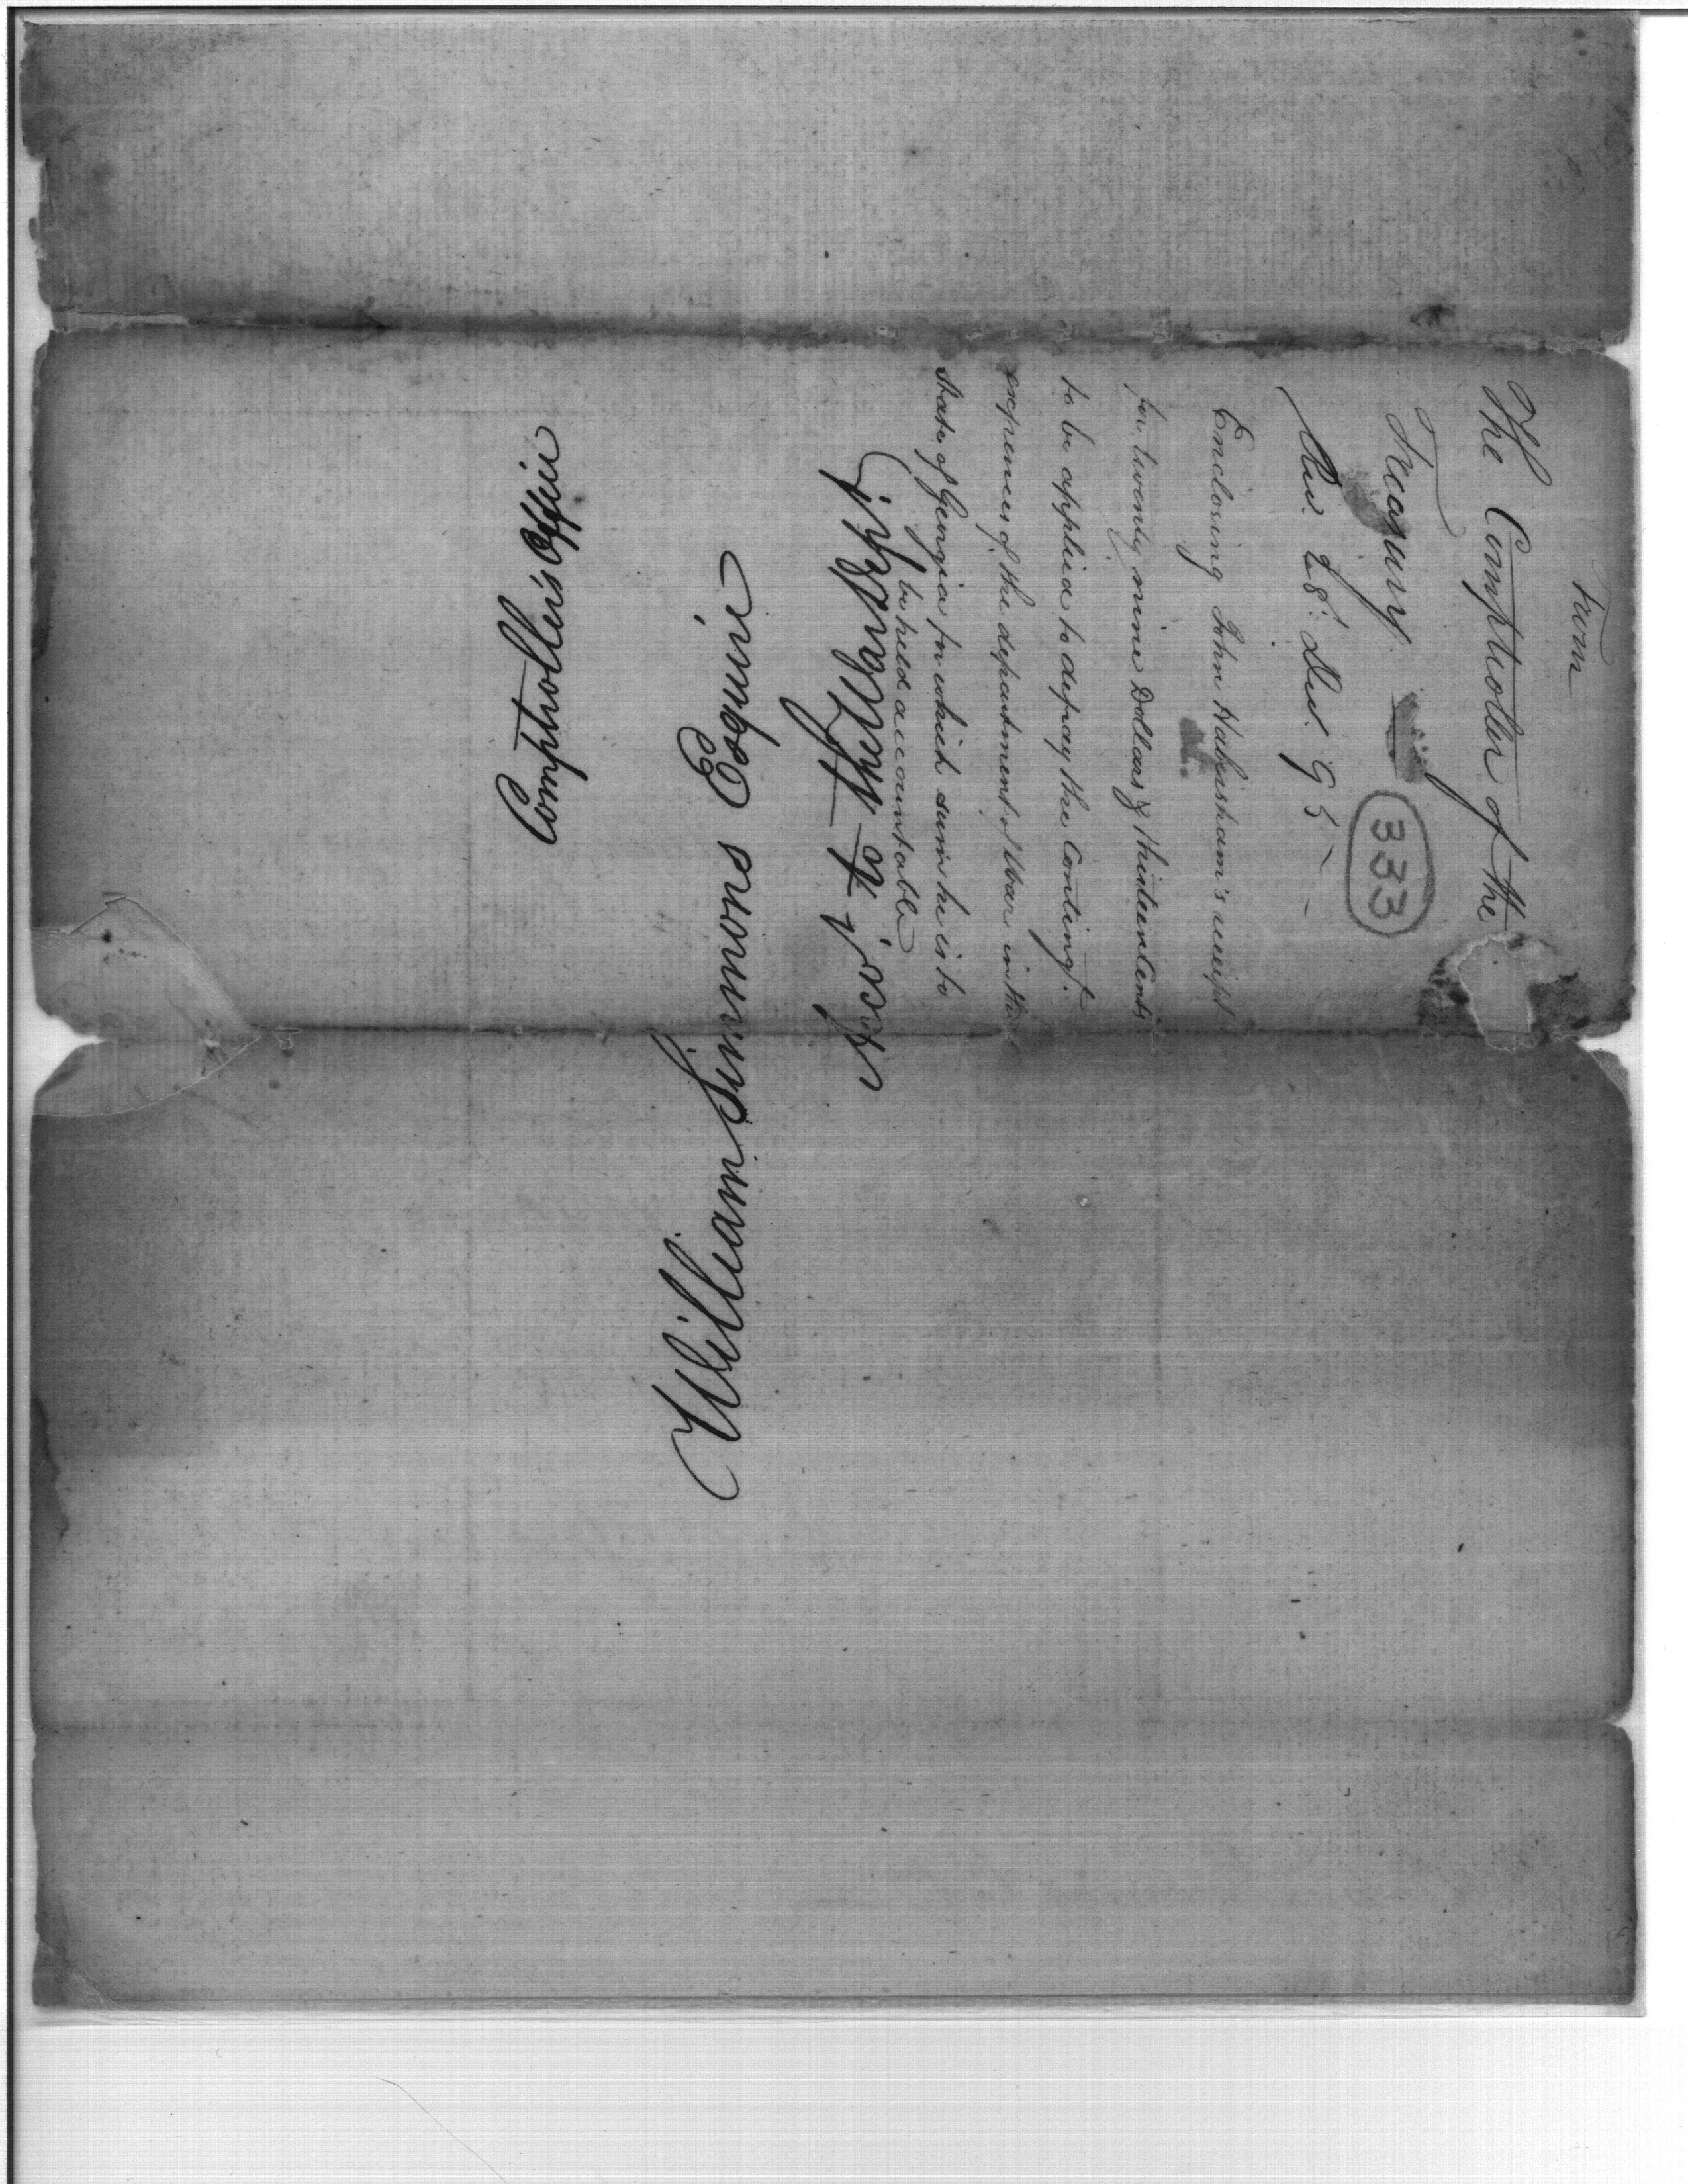 From
The Comptroller of the
Treasury.
333
28. Decr. 95
Enclosing John Habersham's receipt
for twenty nine Dollars & thirteen Cents
to be applied to defray the Conting.t
expences of the department of War in the
State of Georgia for which sum he is to
be held accountable
Comptroller's Office
William Simmons Esquire